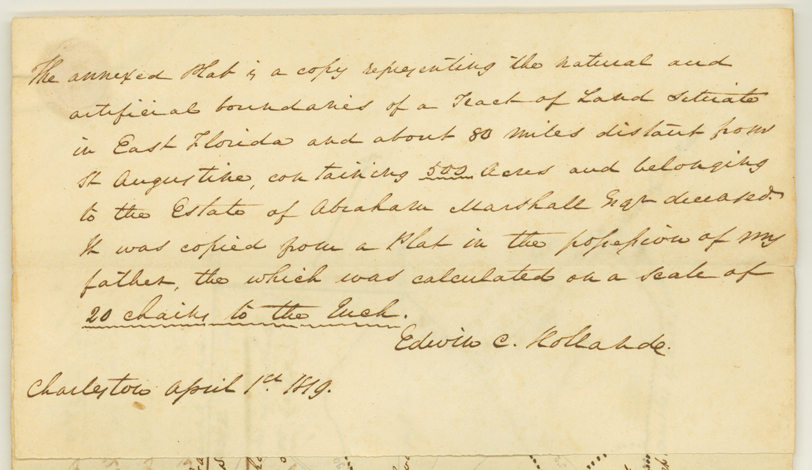 The annexed Plat is a copy representing the natural and
artificial boundaries of a Tract of Land situate
in East Florida and about 80 miles distant from
St Augustine, containing 500 Acres and belonging
to the Estate of Abraham Marshall Esqr deceased.
It was copied from a Plat in the possession of my
father, the which was calculated on a scale of
20 chains to the Inch.
Edwin C. Holland.
Charleston April 1st. 1819.